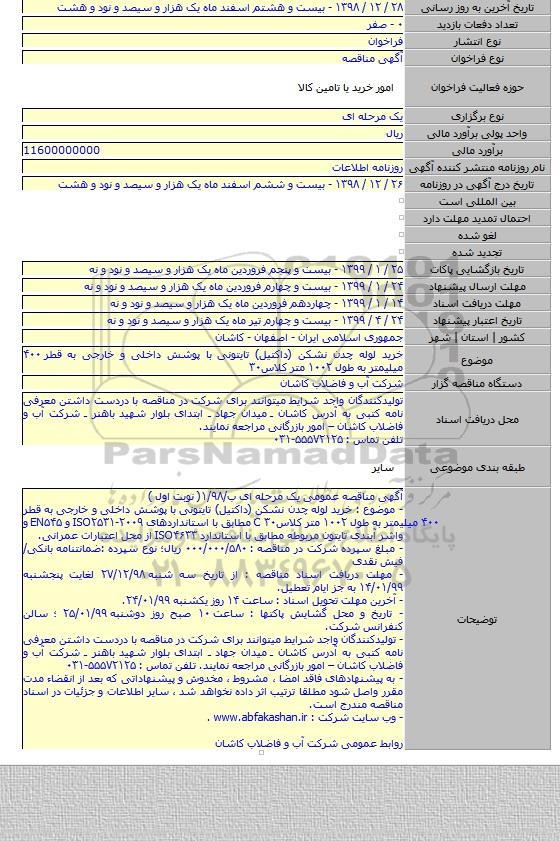 تاریخ آخرین به روز رسانی ۲۸ / ۱۲ / ۱۳۹۸ - بیست و هشتم اسفند ماه یک هزار و سیصد و نود و هشت
تعداد دفعات بازدید ۰ - صفر
نوع انتشار فراخوان
نوع فراخوان آگهی مناقصه
حوزه فعالیت فراخوان امور خرید یا تامین کالا
نوع برگزاری یک مرحله ای
واحد پولی برآورد مالی ریال
برآورد مالی 11600000000
نام روزنامه منتشر کننده آگهی روزنامه اطلاعات
تاریخ درج آگهی در روزنامه ۲۶ / ۱۲ / ۱۳۹۸ - بیست و ششم اسفند ماه یک هزار و سیصد و نود و هشت
بین المللی است
احتمال تمدید مهلت دارد
لغو شده
تجدید شده
تاریخ بازگشایی پاکات ۲۵ / ۱ / ۱۳۹۹ - بیست و پنجم فروردین ماه یک هزار و سیصد و نود و نه
مهلت ارسال پیشنهاد ۲۴ / ۱ / ۱۳۹۹ - بیست و چهارم فروردین ماه یک هزار و سیصد و نود و نه
مهلت دریافت اسناد ۱۴ / ۱ / ۱۳۹۹ - چهاردهم فروردین ماه یک هزار و سیصد و نود و نه
تاریخ اعتبار پیشنهاد ۲۴ / ۴ / ۱۳۹۹ - بیست و چهارم تیر ماه یک هزار و سیصد و نود و نه
کشور | استان | شهر جمهوری اسلامی ایران - اصفهان - کاشان
موضوع خرید لوله چدن نشکن (داکتیل) تایتونی با پوشش داخلی و خارجی به قطر ۴۰۰
میلیمتر به طول ۱۰۰۲ متر کلاس۳۰
دستگاه مناقصه گزار شرکت آب و فاضلاب کاشان
محل دریافت اسناد تولیدکنندگان واجد شرایط میتوانند برای شرکت در مناقصه با دردست داشتن معرفی
نامه کتبی به آدرس کاشان ـ میدان جهاد ـ ابتدای بلوار شهید باهنر ـ شرکت آب و
فاضلاب کاشان – امور بازرگانی مراجعه نمایند.
تلفن تماس : ۵۵۵۷۲۱۲۵-۰۳۱
طبقه بندی موضوعی سایر
توضیحات
آگهی مناقصه عمومی یک مرحله ای ب/۱/۹۸( نوبت اول )
- موضوع : خرید لوله چدن نشکن (داکتیل) تایتونی با پوشش داخلی و خارجی به قطر
۴۰۰ میلیمتر به طول ۱۰۰۲ متر کلاس۳۰ C مطابق با استانداردهای ISO۲۵۳۱-۲۰۰۹ و EN۵۴۵ و
واشر آبندی تایتون مربوطه مطابق با استاندارد ISO۴۶۳۳ از محل اعتبارات عمرانی.
- مبلغ سپرده شرکت در مناقصه : ۵۸۰/۰۰۰/۰۰۰ ریال؛ نوع سپرده :ضمانتنامه بانکی/
فیش نقدی
- مهلت دریافت اسناد مناقصه : از تاریخ سه شنبه ۲۷/۱۲/۹۸ لغایت پنجشنبه
۱۴/۰۱/۹۹ به جز ایام تعطیل.
- آخرین مهلت تحویل اسناد : ساعت ۱۴ روز یکشنبه ۲۴/۰۱/۹۹.
- تاریخ و محل گشایش پاکتها : ساعت ۱۰ صبح روز دوشنبه ۲۵/۰۱/۹۹ ؛ سالن
کنفرانس شرکت.
- تولیدکنندگان واجد شرایط میتوانند برای شرکت در مناقصه با دردست داشتن معرفی
نامه کتبی به آدرس کاشان ـ میدان جهاد ـ ابتدای بلوار شهید باهنر ـ شرکت آب و
فاضلاب کاشان – امور بازرگانی مراجعه نمایند. تلفن تماس : ۵۵۵۷۲۱۲۵-۰۳۱
- به پیشنهادهای فاقد امضا ، مشروط ، مخدوش و پیشنهاداتی که بعد از انقضاء مدت
مقرر واصل شود مطلقا ترتیب اثر داده نخواهد شد ، سایر اطلاعات و جزئیات در اسناد
مناقصه مندرج است.
- وب سایت شرکت : www.abfakashan.ir .
روابط عمومی شرکت آب و فاضلاب کاشان
ParsNamadData
۰۲۱-۸۸۳۴۹۶۷۰-۵